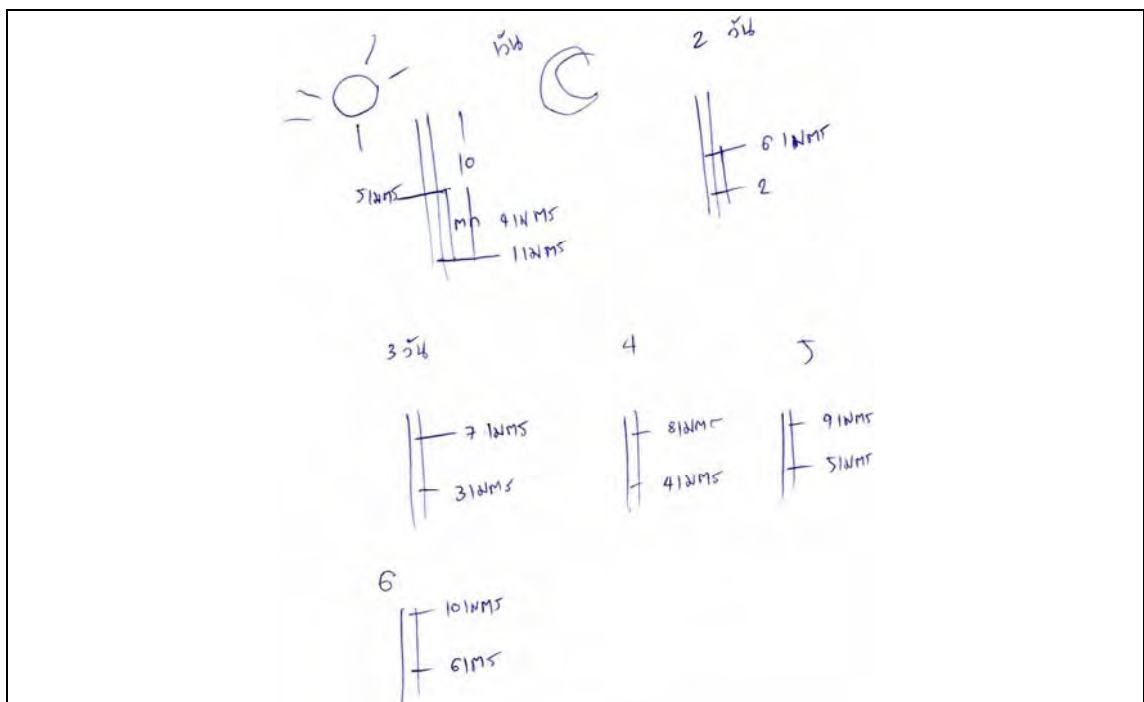 1วัน
2 วัน
10
5เมตร
ตก 4เมตร
1เมตร
6 เมตร
2
3วัน
4
5
7 เมตร
3เมตร
8เมตร
4เมตร
9เมตร
5เมตร
6
10เมตร
6เตร